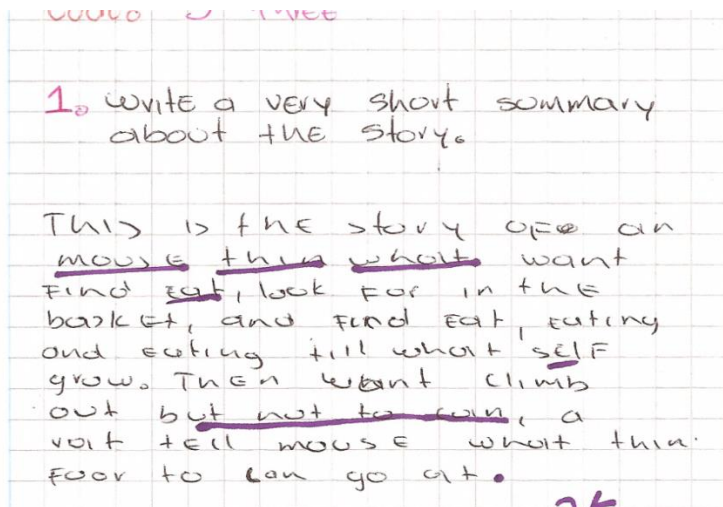 1. write a very short summary
about the story.
This is the story of an
mouse thin what want
Find Eat, look For in the
basket, and Find Eat, Eating
and eating till what self
grow. Then want climb
out but not to can, a
rat tell mouse what thin
to can go at.